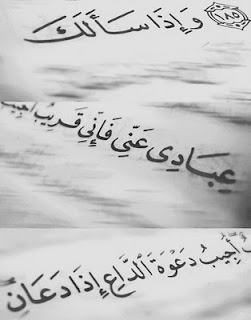 ١٨٥ وَإِذَا سَأَلَكَ
عِبَادِي عَنِّي فَإِنِّي قَرِيبٌ أُجِيبُ
أُجِيبُ دَعْوَةَ ٱلدَّاعِ إِذَا دَعَانِ